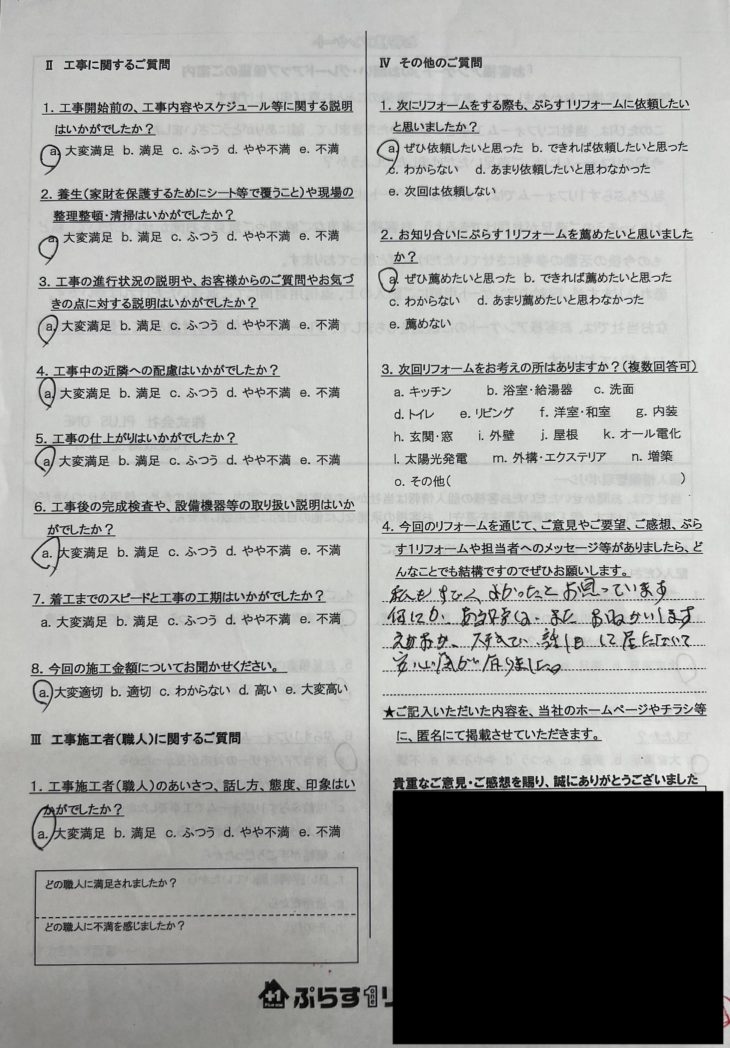 Ⅱ 工事に関するご質問
1. 工事開始前の、工事内容やスケジュール等に関する説明
はいかがでしたか？
a. 大変満足 b. 満足 c. ふつう d. やや不満 e. 不満
2. 養生(家財を保護するためにシート等で覆うこと)や現場の
整理整頓・清掃はいかがでしたか？
a. 大変満足 b. 満足 c. ふつう d. やや不満 e. 不満
3. 工事の進行状況の説明や、お客様からのご質問やお気づ
きの点に対する説明はいかがでしたか？
a. 大変満足 b. 満足 c. ふつう d. やや不満 e. 不満
4. 工事中の近隣への配慮はいかがでしたか？
a. 大変満足 b. 満足 c. ふつう d. やや不満 e. 不満
5. 工事の仕上がりはいかがでしたか？
a. 大変満足 b. 満足 c. ふつう d. やや不満 e. 不満
6. 工事後の完成検査や、設備機器等の取り扱い説明はいか
がでしたか？
a. 大変満足 b. 満足 c. ふつう d. やや不満 e. 不満
7. 着工までのスピードと工事の工期はいかがでしたか？
a. 大変満足 b. 満足 c. ふつう d. やや不満 e. 不満
8. 今回の施工金額についてお聞かせください。
a. 大変適切 b. 適切 c. わからない d. 高い e. 大変高い
Ⅲ 工事施工者(職人)に関するご質問
1. 工事施工者(職人)のあいさつ、話し方、態度、印象はい
かがでしたか？
a. 大変満足 b. 満足 c. ふつう d. やや不満 e. 不満
どの職人に満足されましたか？
どの職人に不満を感じましたか？
Ⅳ その他のご質問
1. 次にリフォームをする際も、ぷらす1リフォームに依頼したい
と思いましたか？
a. ぜひ依頼したいと思った b. できれば依頼したいと思った
c. わからない d. あまり依頼したいと思わなかった
e. 次回は依頼しない
2. お知り合いにぷらす1リフォームを薦めたいと思いました
か？
a. ぜひ薦めたいと思った b. できれば薦めたいと思った
c. わからない d. あまり薦めたいと思わなかった
e. 薦めない
3. 次回リフォームをお考えの所はありますか？(複数回答可)
a. キッチン b. 浴室・給湯器 c. 洗面
d. トイレ e. リビング f. 洋室・和室 g. 内装
h. 玄関・窓 i. 外壁 j. 屋根 k. オール電化
l. 太陽光発電 m. 外構・エクステリア n. 増築
o. その他( )
4. 今回のリフォームを通じて、ご意見やご要望、ご感想、ぷら
す1リフォームや担当者へのメッセージ等がありましたら、ど
んなことでも結構ですのでぜひお願いします。
私もすごくよかったとお思っています
何にか また おねがいします
して
安心 りました。
★ご記入いただいた内容を、当社のホームページやチラシ等
に、匿名にて掲載させていただきます。
貴重なご意見・ご感想を賜り、誠にありがとうございました
+1 ぷらす1リ
one